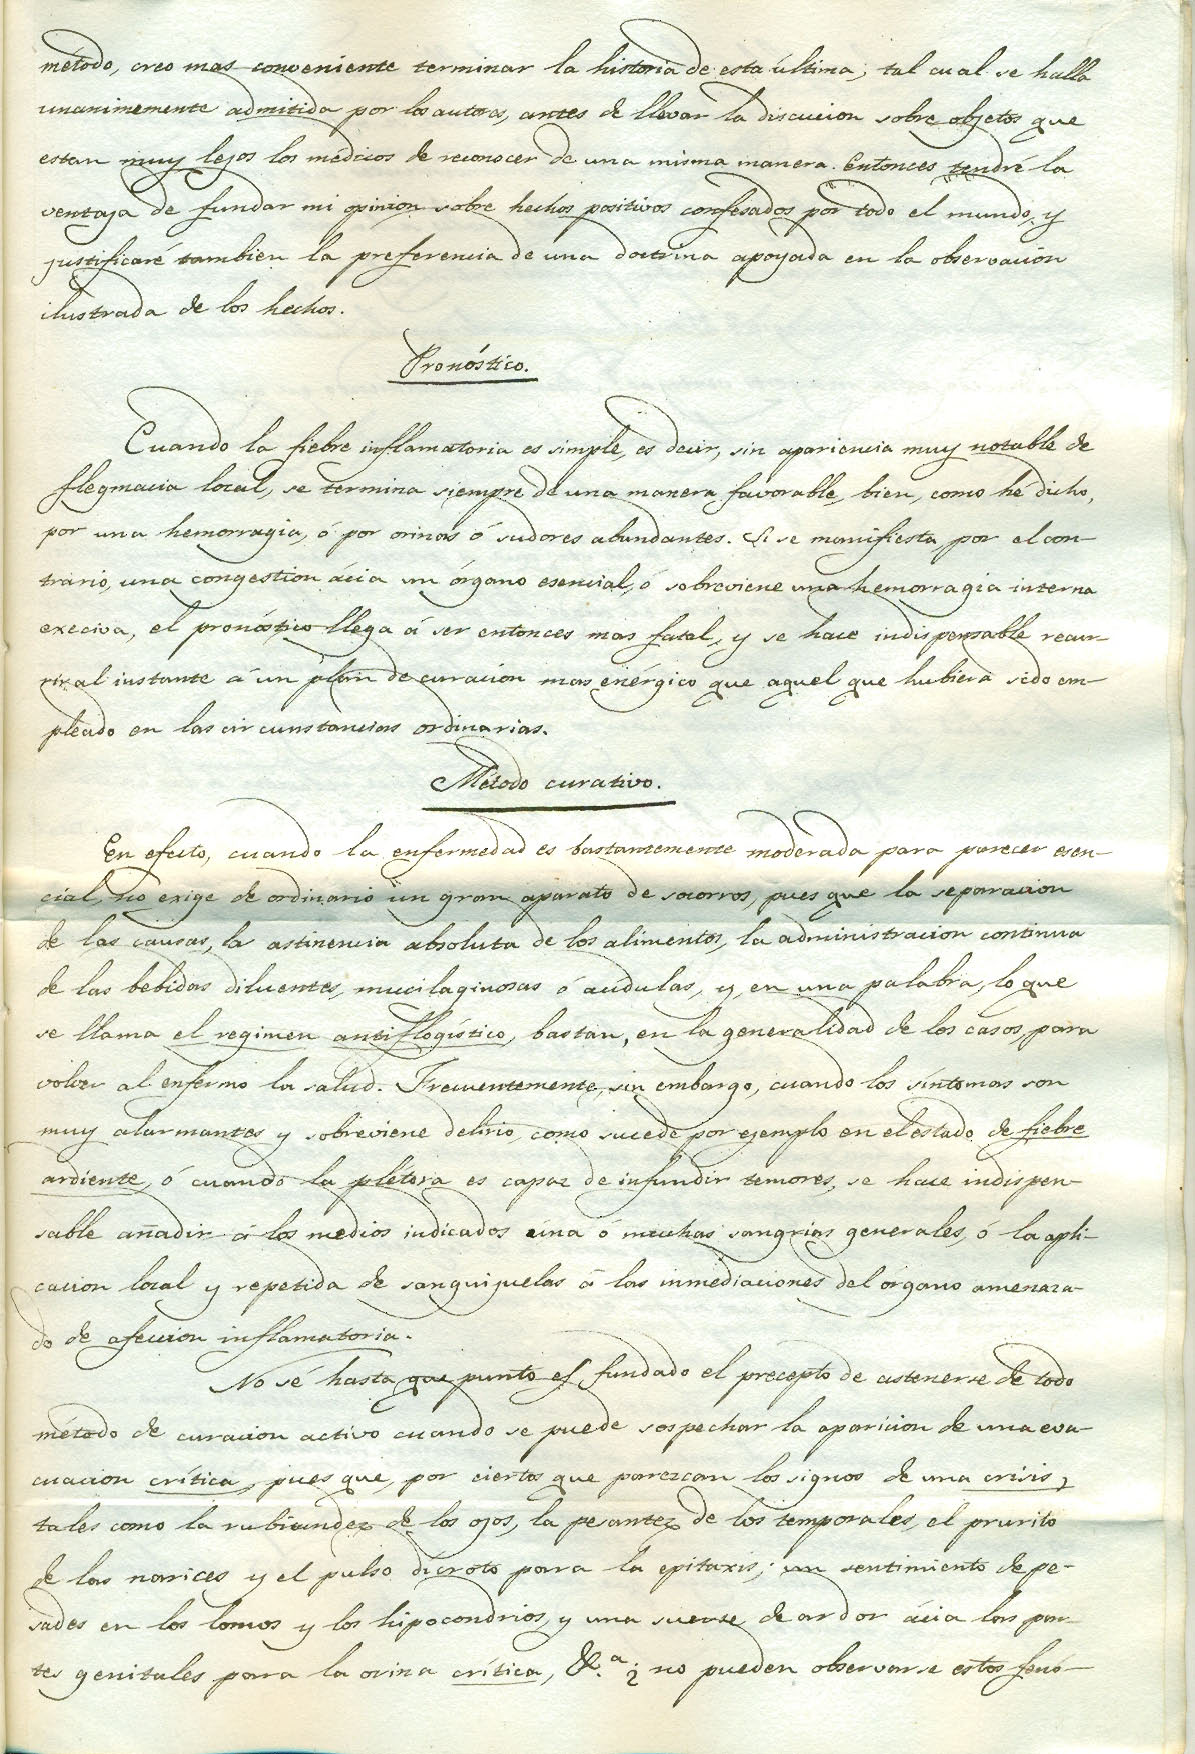 método, creo mas conveniente terminar la historia de esta última, tal cual se halla
unanimemente admitida por los autores, antes de llevar la discucion sobre objetos que
estan muy lejos los médicos de reconocer de una misma manera. Entonces tendré la
ventaja de fundar mi opinion sobre hechos positivos confesados por todo el mundo, y
justificaré tambien la preferencia de una doctrina apoyada en la observacion
ilustrada de los hechos.
Pronóstico.
Cuando la fiebre inflamatoria es simple, es decir, sin apariencia muy notable de
flegmacia local, se termina siempre de una manera favorable, bien, como hé dicho,
por una hemorragia, ó por orinas ó sudores abundantes. Si se manifiesta, por el con-
trario, una congestion ácia un órgano esencial, ó sobreviene una hemorragia interna
execiva, el pronóstico llega á ser entonces mas fatal, y se hace indispensable recur-
rir al instante á un plan de curacion mas enérgico que aquel que hubiera sido em-
pleado en las circunstancias ordinarias.
Método curativo.
En efecto, cuando la enfermedad es bastantemente moderada para parecer esen-
cial, no exige de ordinario un gran aparato de socorros, pues que la separacion
de las causas, la astinencia absoluta de los alimentos, la administracion continua
de las bebidas diluentes, mucilaginosas ó acidulas, y, en una palabra, lo que
se llama el regimen antiflogístico, bastan, en la generalidad de los casos, para
volver al enfermo la salud. Frecuentemente, sin embargo, cuando los síntomas son
muy alarmantes y sobreviene delirio, como sucede por ejemplo en el estado de fiebre
ardiente, ó cuando la plétora es capaz de infundir temores, se hace indispen-
sable añadir á los medios indicados una ó muchas sangrias generales, ó la apli-
cacion local y repetida de sanguijuelas á las inmediaciones del organo amenaza-
do de afeccion inflamatoria.
No sé hasta que punto es fundado el precepto de astenerse de todo
método de curacion activo cuando se puede sospechar la aparicion de una eva-
cuacion crítica, pues que, por ciertos que parezcan los signos de una crisis,
tales como la rubicundez de los ojos, la pesantez de los temporales, el prurito
de las narices y el pulso dícroto para la epitaxis; un sentimiento de pe-
sades en los lomos y los hipocondrios, y una suerte de ardor ácia las par-
tes genitales para la orina crítica, &.ª ¿ no pueden observarse estos fenó-